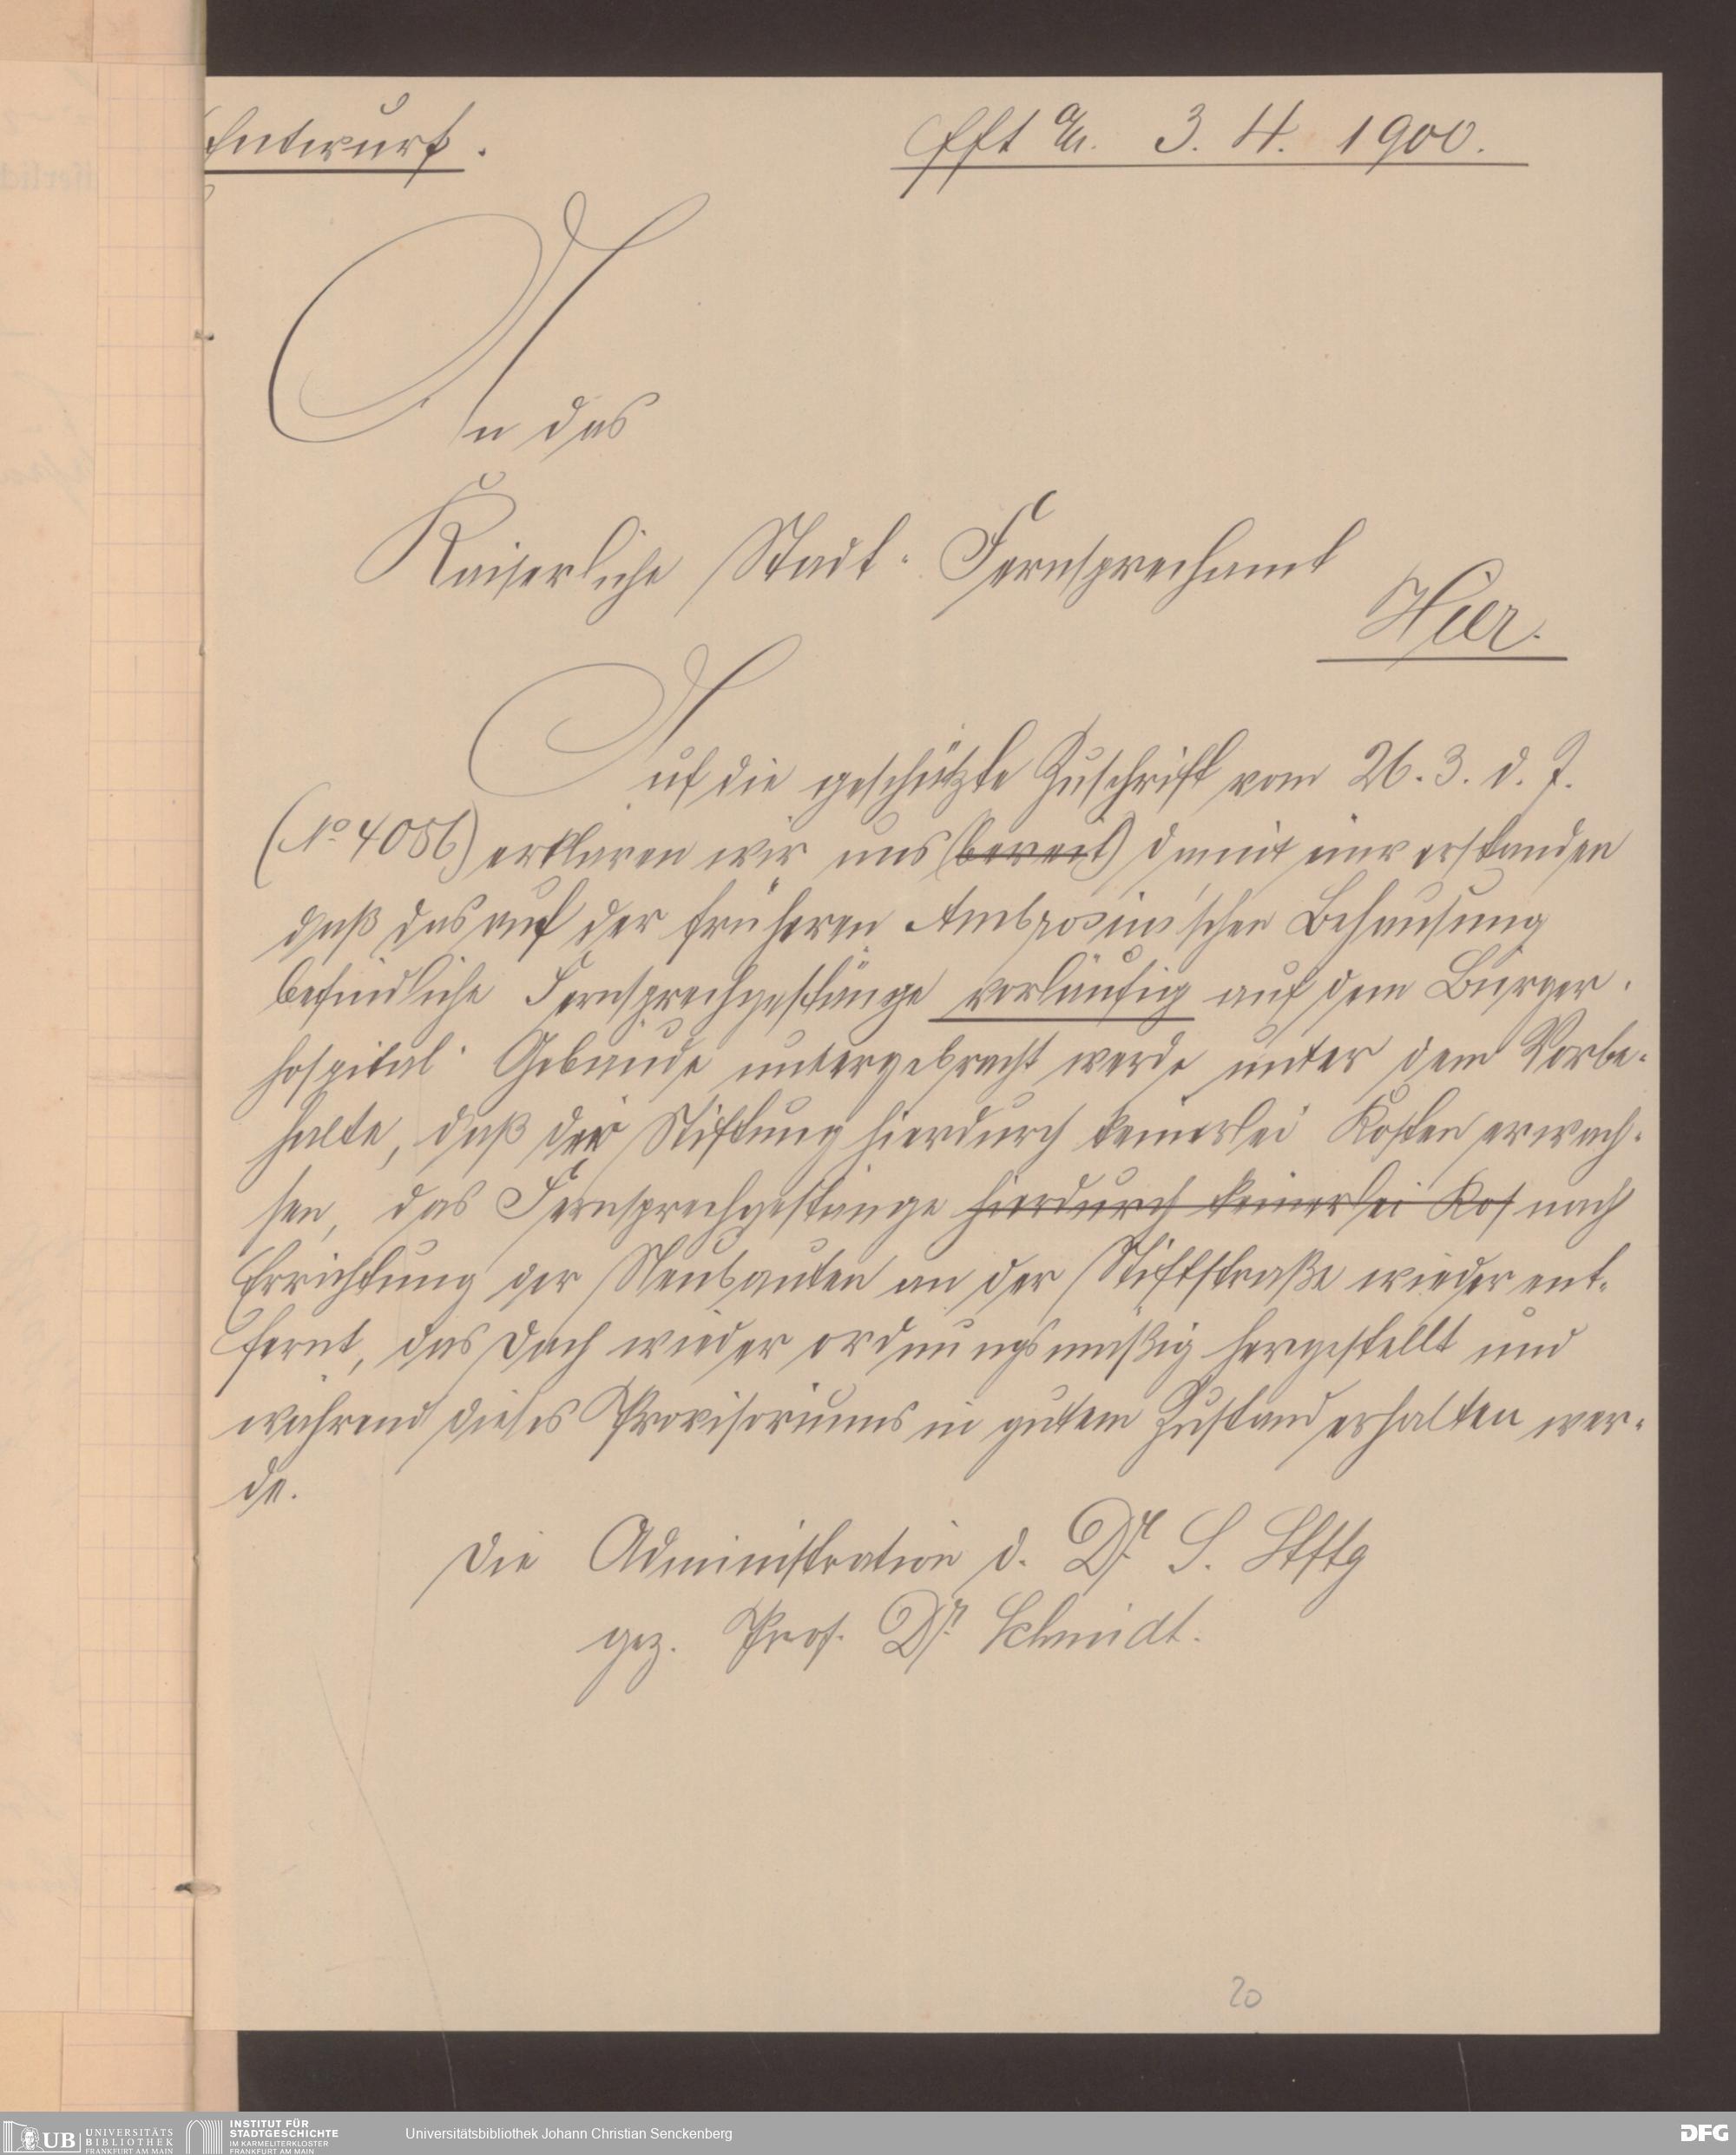 Entwurf.
Ffft a/M. 3. 4. 1900.
An das
Kaiserliche Stadt-Fernsprechamt
Hier.
Auf die geschätzte Zuschrift vom 26. 3. d. J.
(No 4086) erklären wir uns (bereit) damit einverstanden
daß das auf der früheren Ambrosius'schen Behausung
befindliche Fernsprechgestänge vorläufig auf dem Bürger-
hospital-Gebäude untergebracht werde unter dem Vorbe-
halte, daß der Stiftung hierdurch keinerlei Kosten erwach-
sen, das Fernsprechgestänge hierdurch keinerlei Kos nach
Errichtung der Neubauten an der Stiftstraße wieder ent-
fernt, das Dach wieder ordnungsmäßig hergestellt und
während dieses Provisoriums in gutem Zustand erhalten wer-
de.
Die Administration d. Dr. S. Stftg
gez. Prof. Dr. Schmidt.
20
UB UNIVERSITÄTS
BIBLIOTHEK
FRANKFURT AM MAIN
INSTITUT FÜR
STADTGESCHICHTE
IM KARMELITERKLOSTER
FRANKFURT AM MAIN
Universitätsbibliothek Johann Christian Senckenberg
DFG